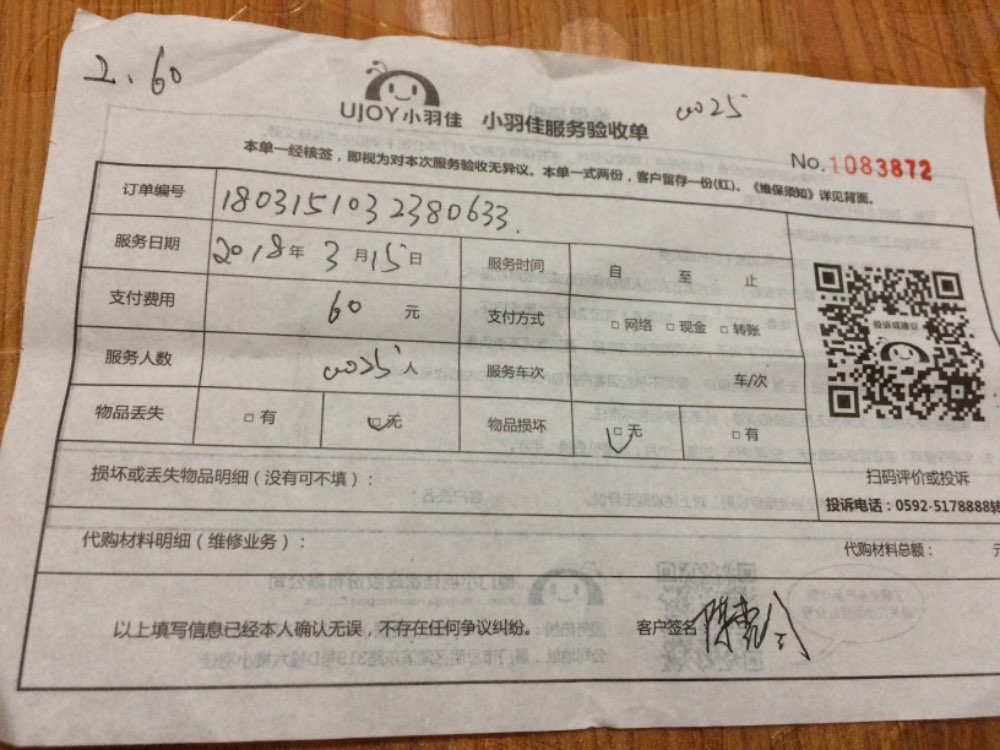 2.60
0025
UJOY小羽佳 小羽佳服务验收单
No.1083872
本单一经核签，即视为对本次服务验收无异议。本单一式两份，客户留存一份(红)。《维保须知》详见背面。
订单编号 1803151032380633.
服务日期 2018年 3月15日 服务时间 自 至 止
支付费用 60 元 支付方式 □网络 □现金 □转账
投诉或建议
服务人数 0025 人 服务车次 车/次
物品丢失 □有 □无 物品损坏 □无 □有
损坏或丢失物品明细（没有可不填）：
扫码评价或投诉
投诉电话：0592-5178888转
代购材料明细（维修业务）：
代购材料总额： 元
以上填写信息已经本人确认无误，不存在任何争议纠纷。 客户签名